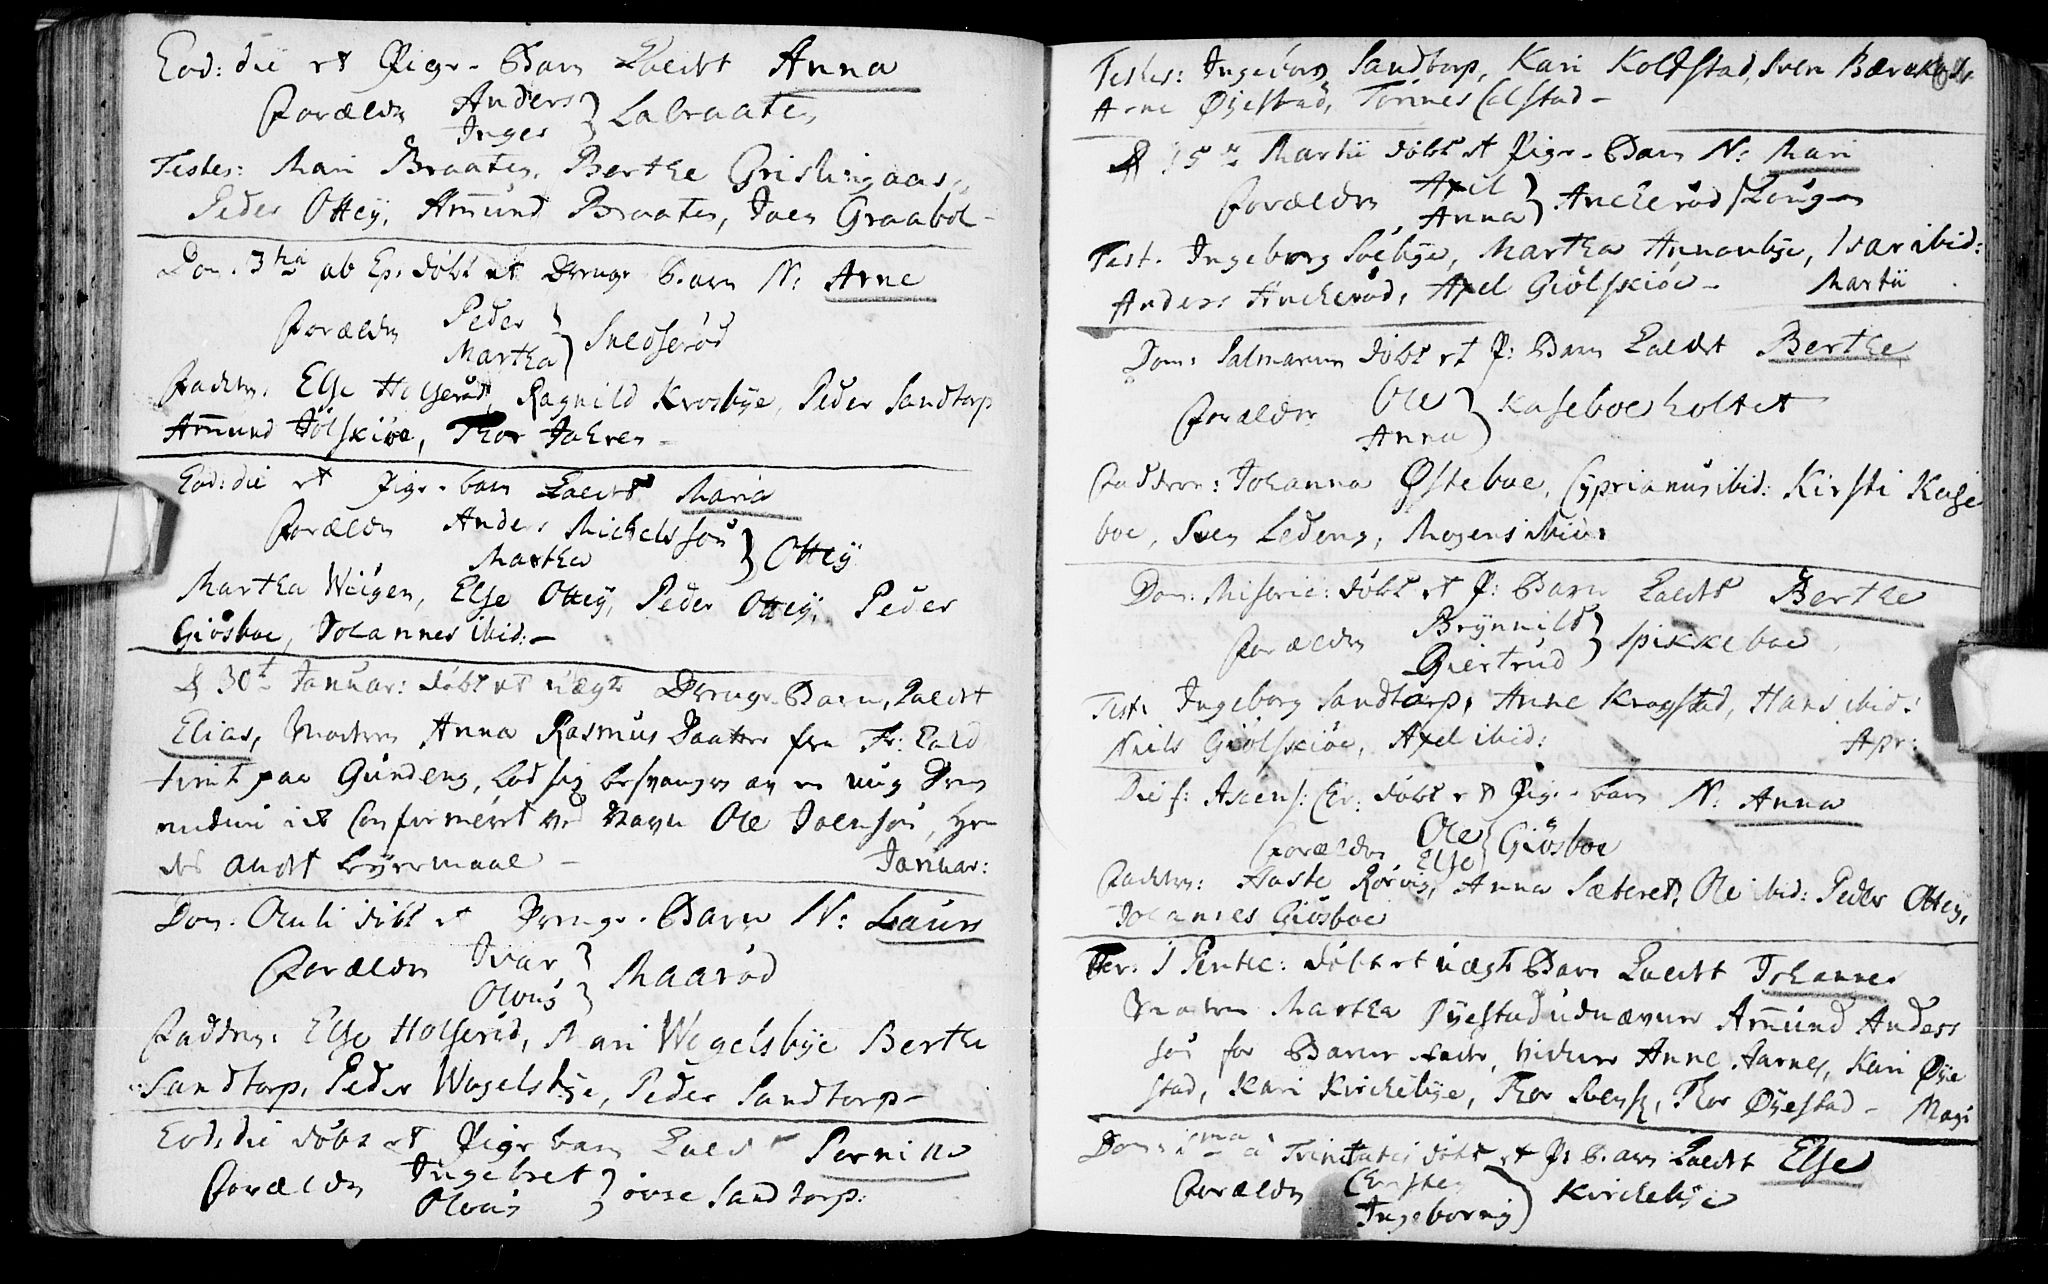 Eod: die et Pige-Barn kaldt Anna
Forældr Anders
Inger } Labraaten
Testes: Mari Braaten, Berthe Grislingaas,
Peder Ottey, Amund Braaten, Joen Graabøl-
Dom. 3tia ab Ep. døbt et Drenge Barn N: Arne
Forældr Peder
Martha } Sneldserød
Faddr, Else Holserød, Ragnild Krosbye, Peder Sandtorp
Amund Jølskiøe, Thor Jahren -
Eod: die et Pige-barn kaldt Maria
Forældr Anders Michelssøn
Martha } Ottey
Martha Weigen, Else Ottey, Peder Ottey, Peder
Giøsboe, Johannes ibid: -
d 30t Januar: døbt et uægte Drenge-Barn, kaldt
Elias, Modren Anna Rasmus Daatter fra Fr: hald
tient paa Gundeng, lod sig besvangre av en ung Dreng
endnu ikt Confirmeret ved Navn Ole Joensøn, hen
des andt leyermaal - Januar:
Dom. Oculi døbt et Drenge-Barn N: Laurs
Forældr Ivar
Olous } Maarød
Faddrn: Else Holserød, Mari Wogelsbye Berthe
Sandtorp, Peder Wogelsbye, Peder Sandtorp -
Eod: die døbt et Pige barn kaldt Pernille
Forældr Ingebret
Olous } øvre Sandtorp:
Testes: Ingeborg Sandtorp, Kari Kolstad, Sven
Arne Øyestad, Tønnes Colstad -
d 15de Martii døbt et Pige-Barn N: Mari
Forældrn Axel
Anna } Ancherød / Skougen
Test. Ingeborg Soebye, Martha Annonbye, Ivar ibid:
Anders Ancherød, Axel Giølskiøe - Martii
Dom: Palmarum døbt et P: Barn kaldet Berthe
Forældr Ole
Anna } Kaseboeholtet
Faddrer: Johanna Østeboe, Cyprianus ibid: Kirsti Kase
boe, Sven Ledeng, Mogens ibid:
Dom: Miseric: døbt et P: Barn kaldt Berthe
Forældr Brynnild
Giertrud } Spikkeboe
Test: Ingeborg Sandtorp, Anne Krogstad, Hans ibid:
Niels Giølskiøe, Axel ibid: Apr:
Die f: Ascens: Chr: døbt et Pige-barn N: Anna
Forældr Ole
Else } Giøsboe
Faddrn: Aaste Rørvig, Anna Sæteret, Ole ibid: Peder Ottey,
Johannes Giøsboe
Fer: 1 Pentec: døbt et uægte Barn kaldt Johannes
Modren Martha Øyestad udnævner Amund Anders
søn for Barne-fader, Vidner Anne Aarnes, Kari Øye
stad, Kari Kirchebye, Thor Svensk, Thor Øyestad - Maji
Dom: 1ma a Trinitatis døbt et P: Barn kaldt Else
Forældr Christen
Ingeborrig } Kirchebye